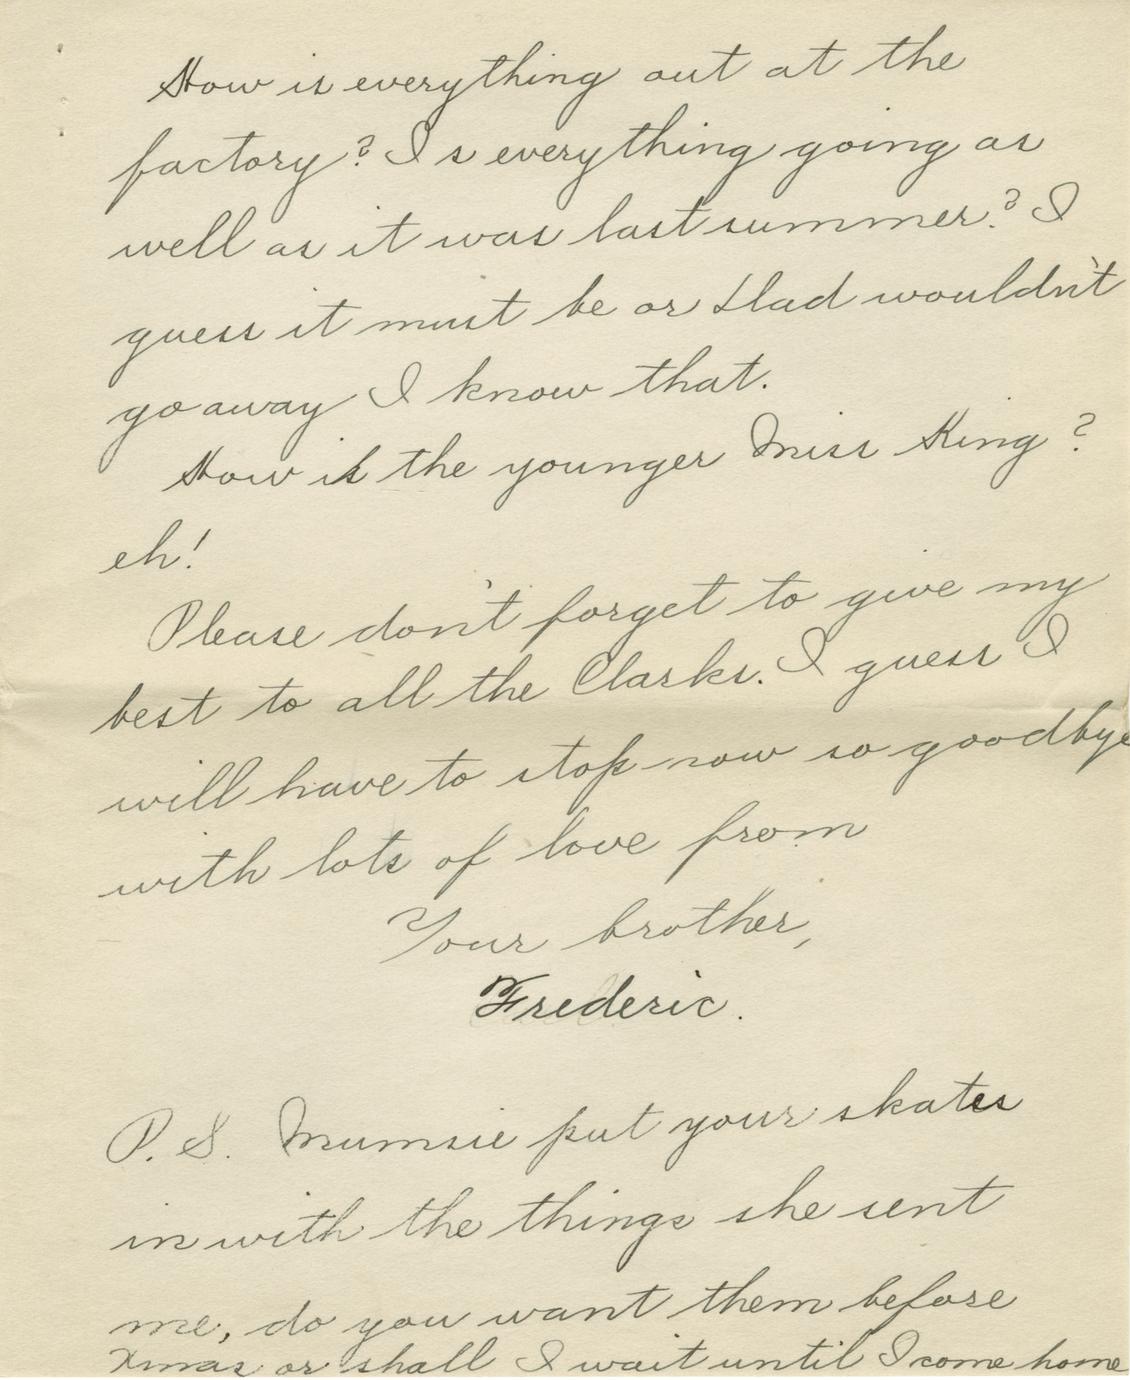 How is everything out at the
factory? Is everything going as
well as it was last summer? I
guess it must be or Dad wouldn't
go away I know that.
How is the younger Miss King?
eh!
Please don't forget to give my
best to all the Clarks. I guess I
will have to stop now so goodbye
with lots of love from
Your brother,
Frederic.
P. S. Mumsie put your skates
in with the things she sent
me, do you want them before
Xmas or shall I wait until I come home